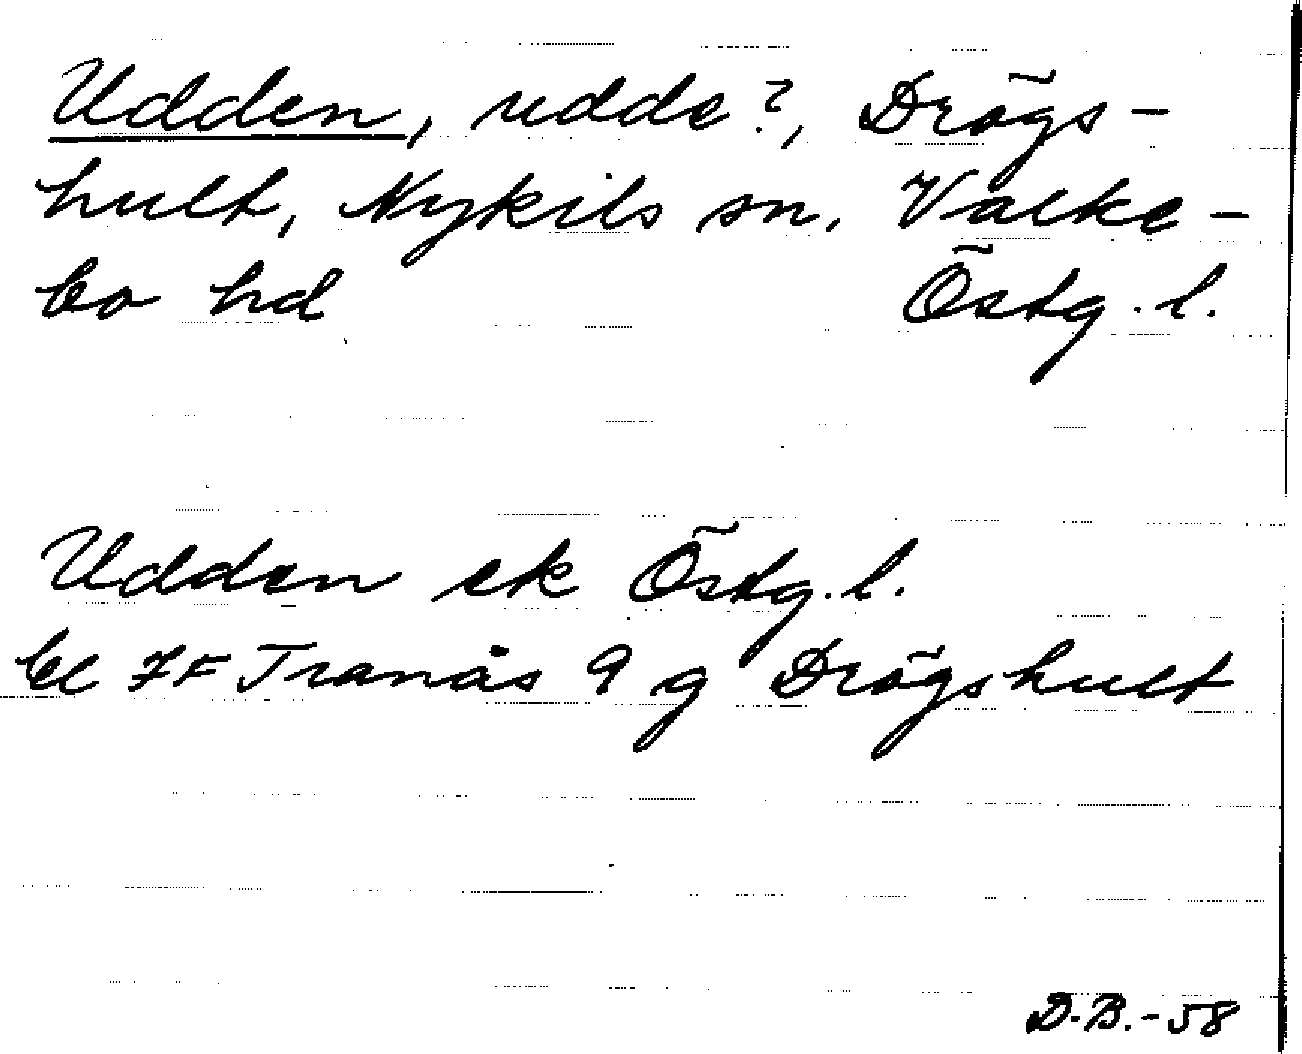 Udden, udde?, Drögs-
hult, Nykils sn. Valke-
bo hd Östg. l.
Udden ek Östg. l.
bl 7F Tranås 9 g Drögshult
D.B. -58